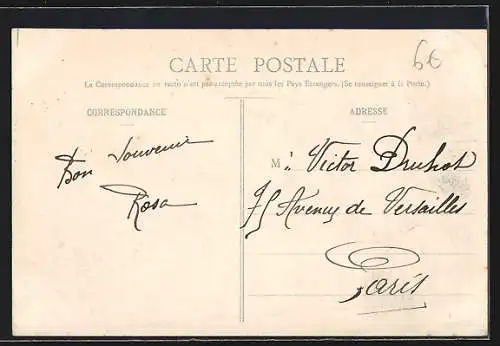 6€
CARTE POSTALE
La Correspondance au recto n'est pas acceptée par tous les Pays Etrangers. (Se renseigner à la Poste.)
CORRESPONDANCE
ADRESSE
Bon Souvenir
Rosa
M. Victor
75 Avenue de Versailles
Paris